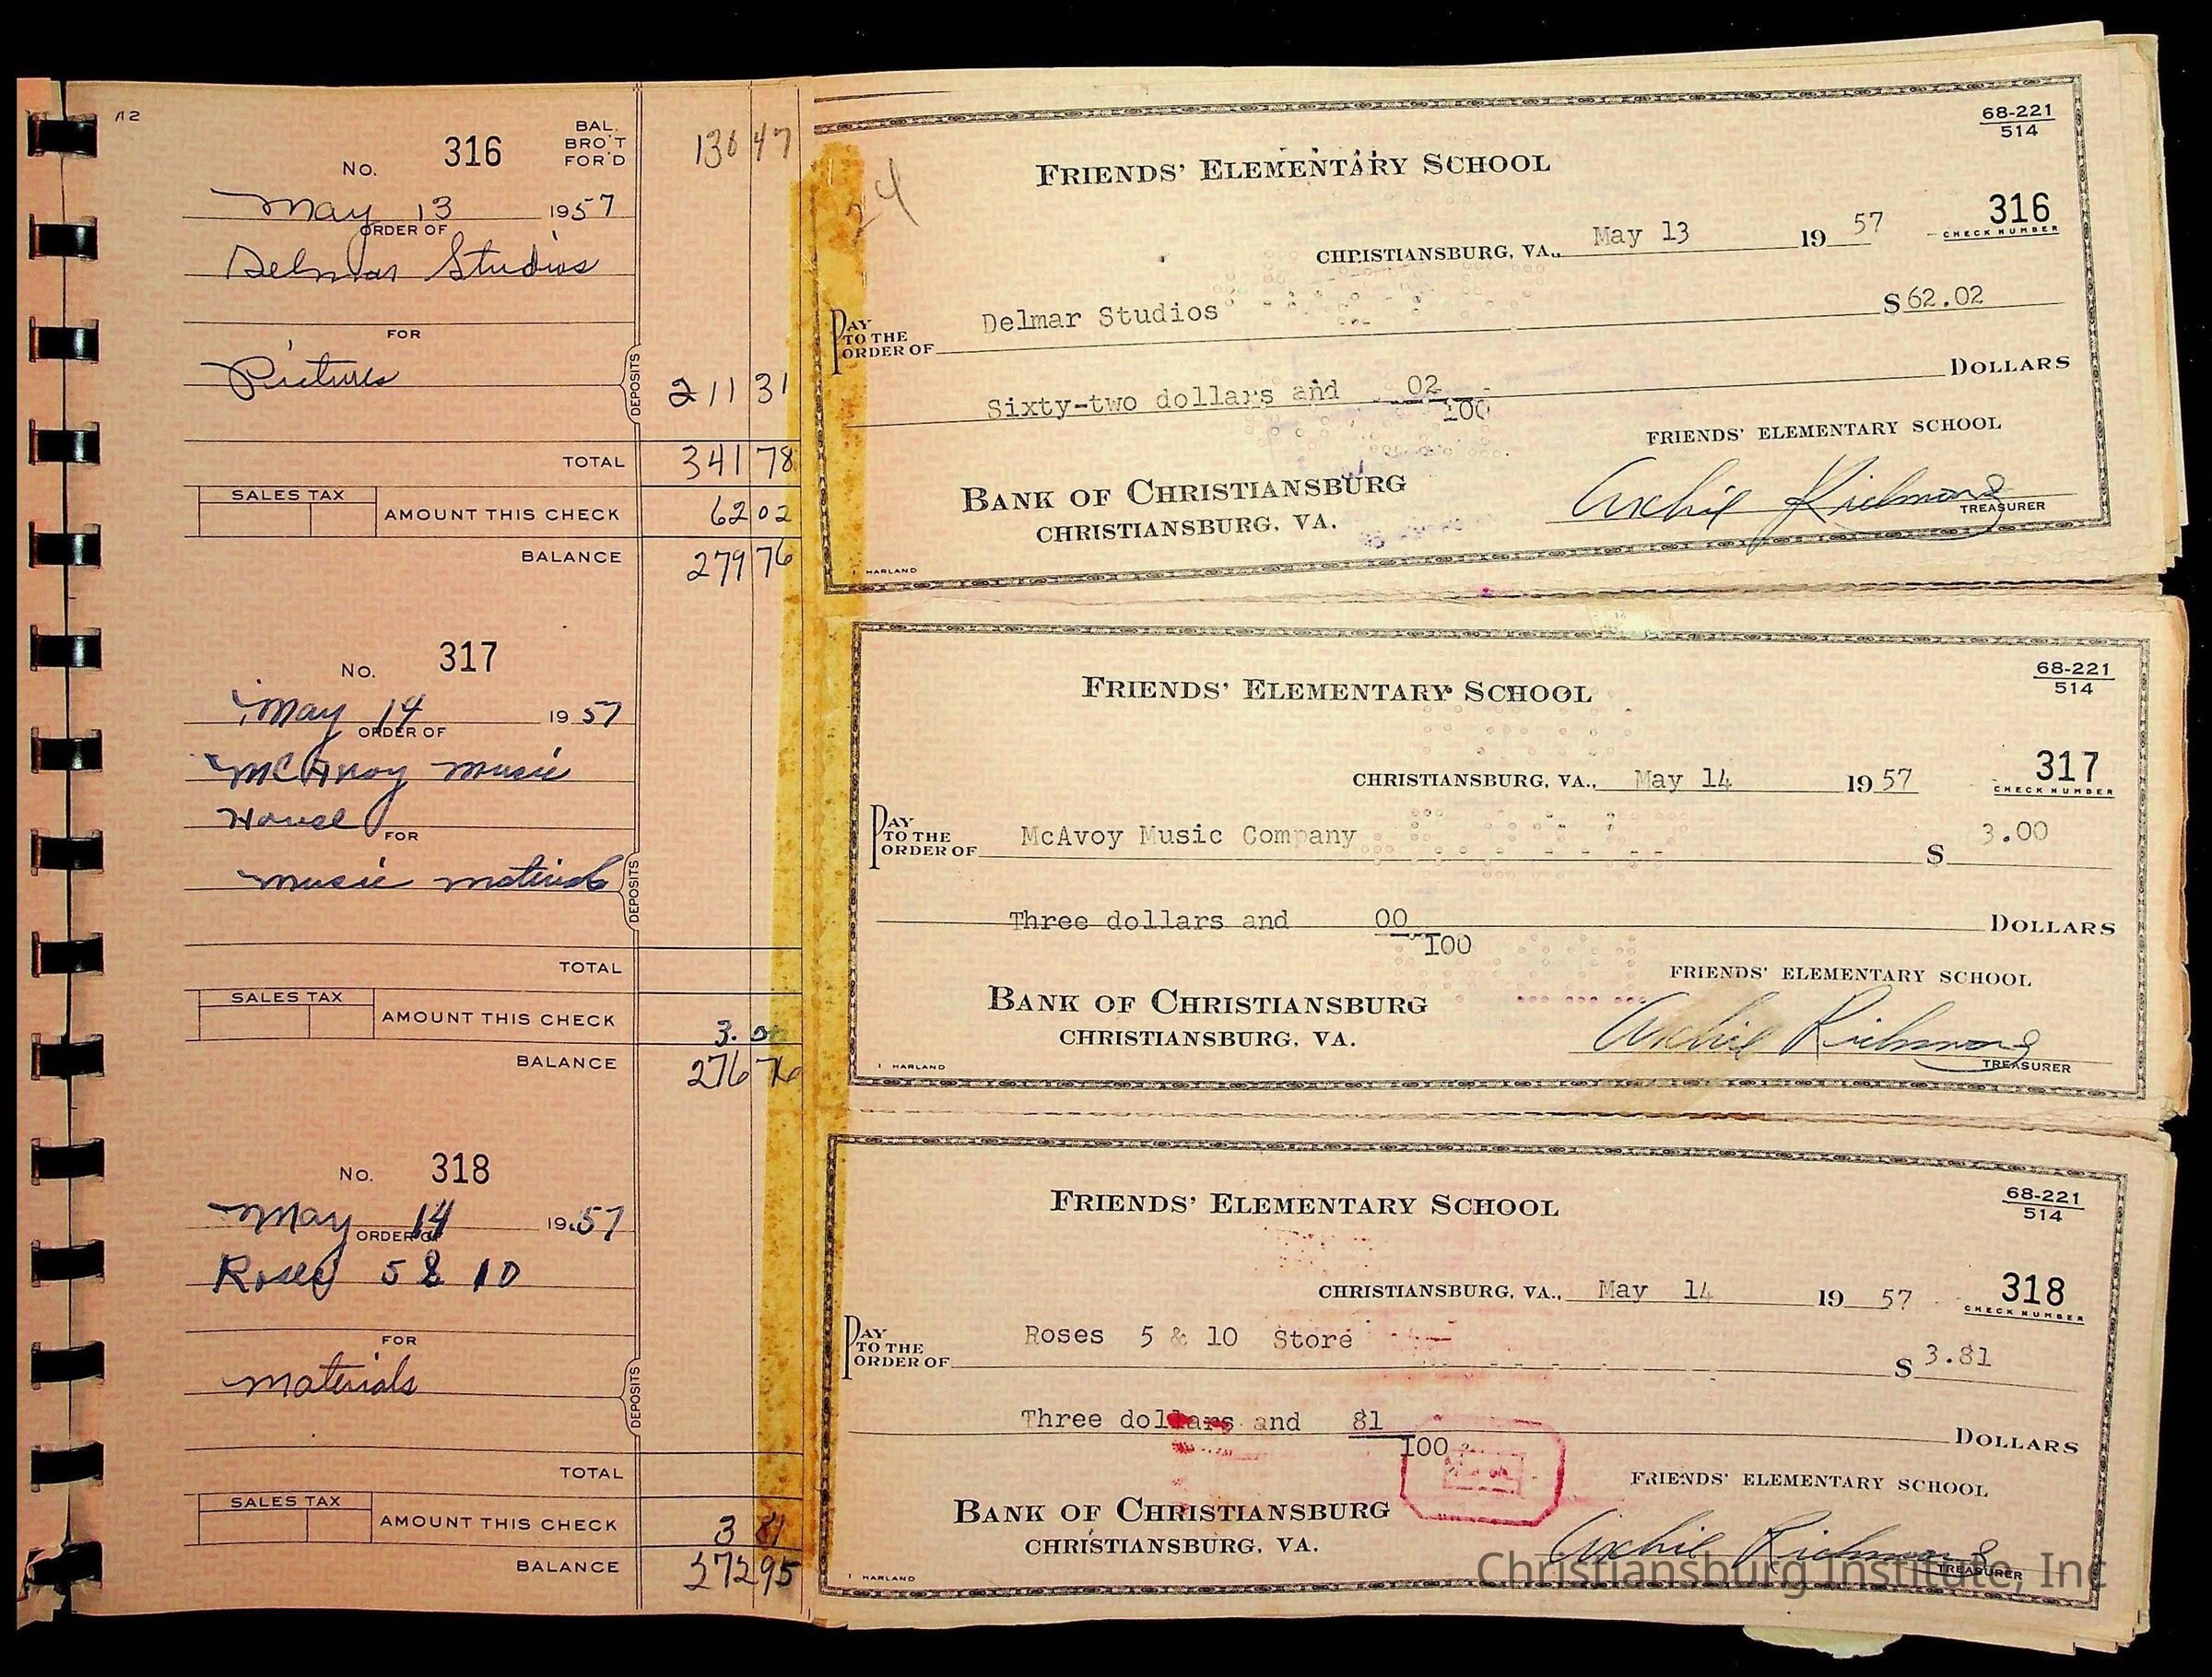 No. 316
BAL. BRO'T FOR'D 130 47
May 13 1957
ORDER OF
Delmar Studios
FOR
Pictures
DEPOSITS 211 31
TOTAL 341 78
SALES TAX
AMOUNT THIS CHECK 62 02
BALANCE 279 76
No. 317
May 14 1957
ORDER OF
McAvoy Music
House
FOR
music materials
DEPOSITS
TOTAL
SALES TAX
AMOUNT THIS CHECK 3.00
BALANCE 276 76
No. 318
May 14 1957
ORDER OF
Roses 5 & 10
FOR
materials
DEPOSITS
TOTAL
SALES TAX
AMOUNT THIS CHECK 3 81
BALANCE 272 95
24
68-221
514
FRIENDS' ELEMENTARY SCHOOL
316
CHECK NUMBER
CHRISTIANSBURG, VA., May 13 1957
PAY TO THE ORDER OF Delmar Studios $62.02
Sixty-two dollars and 02/100 DOLLARS
FRIENDS' ELEMENTARY SCHOOL
BANK OF CHRISTIANSBURG
CHRISTIANSBURG, VA.
Archie Richmond
TREASURER
HARLAND
68-221
514
FRIENDS' ELEMENTARY SCHOOL
317
CHECK NUMBER
CHRISTIANSBURG, VA., May 14 1957
PAY TO THE ORDER OF McAvoy Music Company $ 3.00
Three dollars and 00/100 DOLLARS
FRIENDS' ELEMENTARY SCHOOL
BANK OF CHRISTIANSBURG
CHRISTIANSBURG, VA.
Archie Richmond
TREASURER
HARLAND
68-221
514
FRIENDS' ELEMENTARY SCHOOL
318
CHECK NUMBER
CHRISTIANSBURG, VA., May 14 19 57
PAY TO THE ORDER OF Roses 5 & 10 Store $ 3.81
Three dollars and 81/100 DOLLARS
FRIENDS' ELEMENTARY SCHOOL
BANK OF CHRISTIANSBURG
CHRISTIANSBURG, VA.
Archie Richmond
TREASURER
HARLAND
Christiansburg Institute, Inc